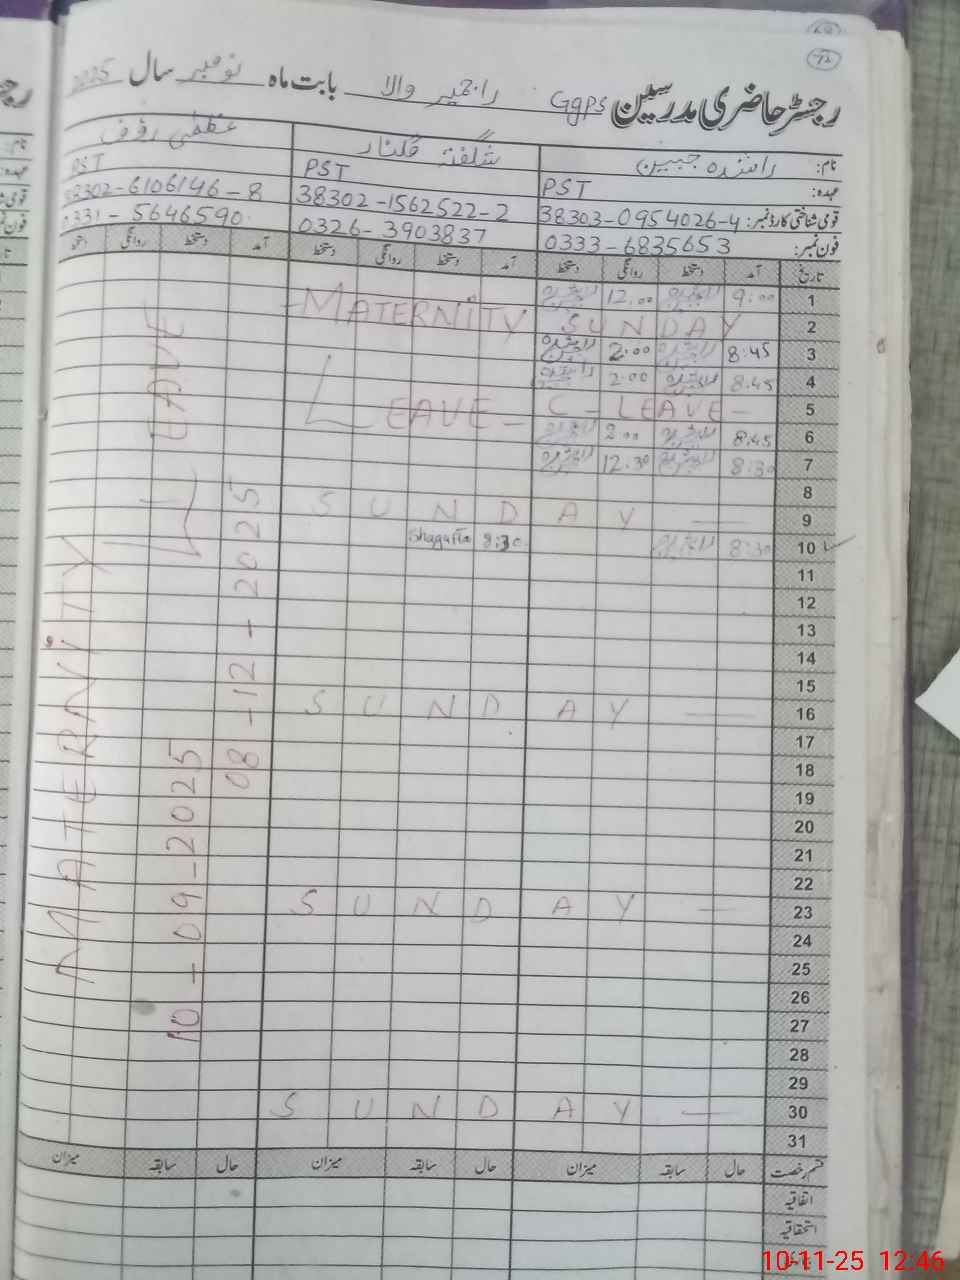 72
رجسٹر حاضری مدرسین GGPS راجیر والا بابت ماہ نومبر سال 2025
نام: راشدہ جبین شگفتہ گلنار عظمیٰ رؤف
عہدہ: PST PST PST
قومی شناختی کارڈ نمبر: 38303-0954026-4 38302-1562522-2 38302-6106146-8
فون نمبر: 0333-6835653 0326-3903837 0331-5646590
تاریخ آمد دستخط روانگی دستخط آمد دستخط روانگی دستخط آمد دستخط روانگی دستخط
1 9:00 12:00
MATERNITY
2 SUNDAY
3 8:45 2:00
4 8:45 2:00
5 C-LEAVE-
LEAVE-
6 8:45 2:00
7 8:30 12:30
8
9 SUNDAY
10 8:30 8:30 Shagufta
11
12
13
14
15
16 SUNDAY
17
18
19
20
21
22
23 SUNDAY
24
25
26
27
28
29
30 SUNDAY
31
MATERNITY LEAVE
10-09-2025
08-12-2025
قسم رخصت حال سابقہ میزان حال سابقہ میزان حال سابقہ میزان
اتفاقیہ
استحقاقیہ
10-11-25 12:46